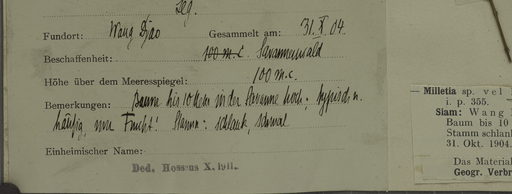 leg.
Fundort: Wang Djao Gesammelt am: 31.X.04.
Beschaffenheit: 100 m.c. Savannenwald
Höhe über dem Meeresspiegel: 100 m.c.
Bemerkungen: Baum bis 10 in der Savanne hoch; typisch u.
häufig, nur Frucht! Stamm: schlank, schmal
Einheimischer Name:
Ded. Hosseus X. 1911.
Milletia sp. vel
i. p. 355.
Siam: Wang
Baum bis 10
Stamm schlank
31. Okt. 1904.
Das Material
Geogr. Verbr